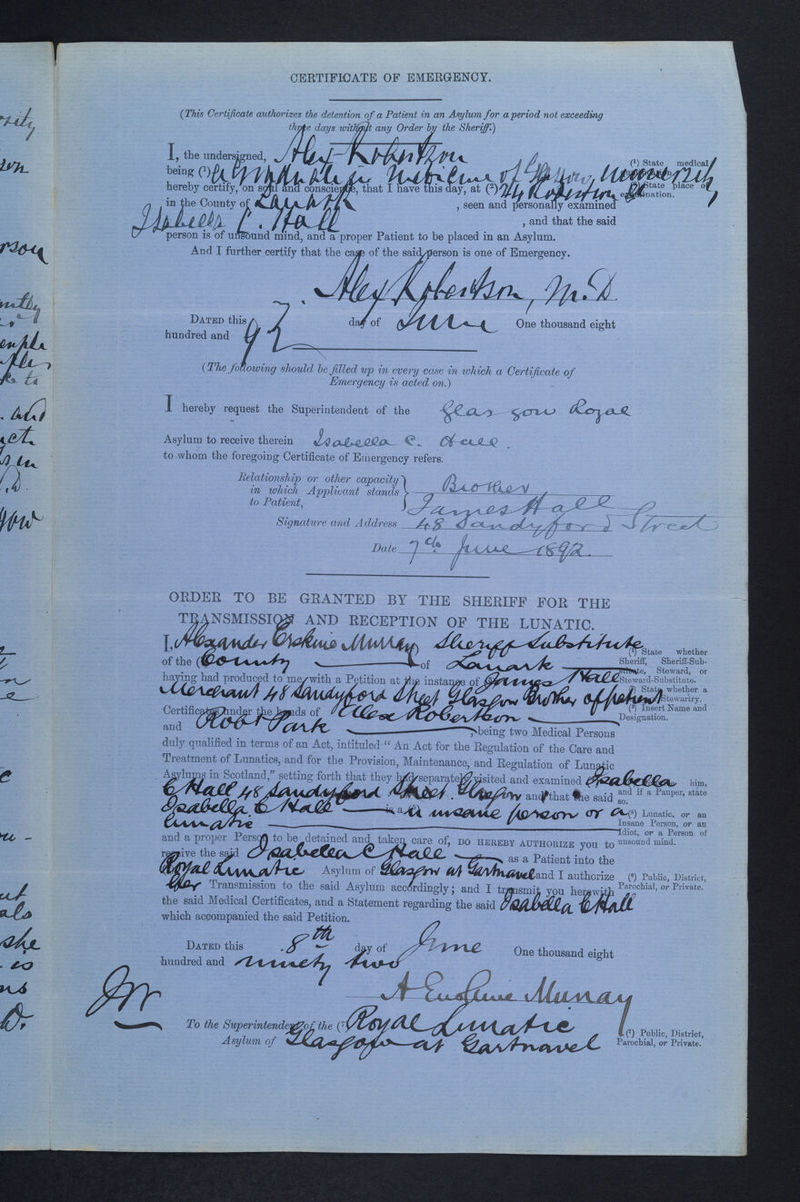 CERTIFICATE OF EMERGENCY.
(This Certificate authorizes the detention of a Patient in an Asylum for a period not exceeding
three days without any Order by the Sheriff.)
I, the undersigned, Alex Robertson
being (1) a Graduate in Medicine of Glasgow University
(1) State medical
hereby certify, on soul and conscience, that I have this day, at (2) 24 Robertson St
(2) State place of
examination.
in the County of Lanark , seen and personally examined
Isabella C. Hall , and that the said
person is of unsound mind, and a proper Patient to be placed in an Asylum.
And I further certify that the case of the said person is one of Emergency.
Alex Robertson, M.D.
DATED this 7. day of June One thousand eight
hundred and 92
(The following should be filled up in every case in which a Certificate of
Emergency is acted on.)
I hereby request the Superintendent of the Glasgow Royal
Asylum to receive therein Isabella C. Hall.
to whom the foregoing Certificate of Emergency refers.
Relationship or other capacity
in which Applicant stands
to Patient,
Brother
James Hall
Signature and Address 48 Sandyford Street
Date 7th June 1892.
ORDER TO BE GRANTED BY THE SHERIFF FOR THE
TRANSMISSION AND RECEPTION OF THE LUNATIC.
I, Alexander Erskine Murray Sheriff Substitute
of the (1) County of Lanark
(1) State whether
Sheriff, Sheriff-Sub-
stitute, Steward, or
Steward-Substitute.
having had produced to me, with a Petition at the instance of James Hall
Merchant 48 Sandyford Street Glasgow Brother of patient
(2) State whether a
Stewartry.
(3) Insert Name and
Designation.
Certificates under the hands of Alex Robertson
and Robt Park , being two Medical Persons
duly qualified in terms of an Act, intituled “ An Act for the Regulation of the Care and
Treatment of Lunatics, and for the Provision, Maintenance, and Regulation of Lunatic
Asylums in Scotland,” setting forth that they had separately visited and examined Isabella
C Hall 48 Sandyford Street. Glasgow and that the said
him,
and if a Pauper, state
so.
Isabella C Hall is a (5) an insane person or a
lunatic
(5) Lunatic, or an
Insane Person, or an
Idiot, or a Person of
unsound mind.
and a proper Person to be detained and taken care of, DO HEREBY AUTHORIZE you to
receive the said Isabella C Hall as a Patient into the
Royal Lunatic Asylum of Glasgow at Gartnavel and I authorize
(6) Public, District,
Parochial, or Private.
her Transmission to the said Asylum accordingly; and I transmit you herewith
the said Medical Certificates, and a Statement regarding the said Isabella C Hall
which accompanied the said Petition.
DATED this 8th day of June One thousand eight
hundred and ninety two
A Erskine Murray
To the Superintendent of the (7) Royal Lunatic
Asylum of Glasgow at Gartnavel
(7) Public, District,
Parochial, or Private.